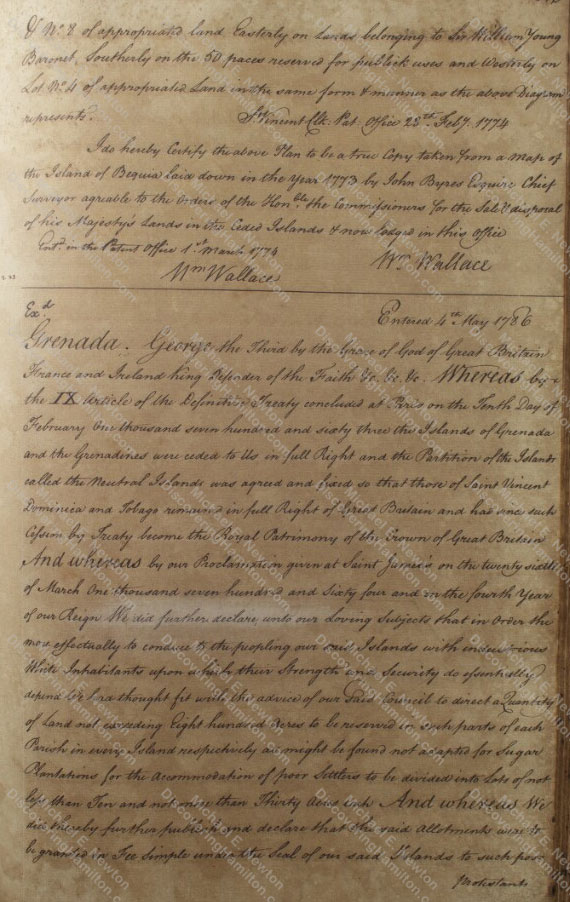 & No. 8 of appropriated land Easterly on Lands belonging to Sir William Young
Baronet, Southerly on the 50 paces reserved for publick uses and Westerly on
Lot No. 4 of appropriated Land in the same form & manner as the above Diagram
represents.
St. Vincent Pat. Office 28th. Feby. 1774
I do hereby Certify the above Plan to be a true Copy taken from a Map of
the Island of Bequia laid down in the Year 1773 by John Byres Esquire Chief
Surveyor agreable to the Orders of the Honble the Commissioners for the Sale & disposal
of his Majesty's Lands in the Ceded Islands & now lodged in this Office
Entd. in the Patent Office 1st March 1774
Wm Wallace
Wm Wallace
Exd
Entered 4th May 1786
Grenada. George the Third by the Grace of God of Great Britain
France and Ireland King Defender of the Faith &c. &c. &c. Whereas by
the IX Article of the Definitive Treaty concluded at Paris on the Tenth Day of
February One thousand seven hundred and sixty three the Islands of Grenada
and the Grenadines were ceded to Us in full Right and the Partition of the Islands
called the Neutral Islands was agreed and fixed so that those of Saint Vincent
Dominica and Tobago remained in full Right of Great Britain and has since such
Cession by Treaty become the Royal Patrimony of the Crown of Great Britain
And whereas by our Proclamation given at Saint James's on the twenty sixth
of March One thousand seven hundred and Sixty four and in the fourth Year
of our Reign We did further declare unto our Loving Subjects that in Order the
more effectually to conduce to the peopling our said Islands with industrious
White Inhabitants upon which their Strength and Security do essentially
depend We had thought fit with the advice of our said Council to direct a Quantity
of Land not exceeding Eight hundred Acres to be reserved in such parts of each
Parish in every Island respectively as might be found not adapted for Sugar
Plantations for the Accommodation of poor Settlers to be divided into Lots of not
less than Ten and not more than Thirty Acres each And whereas We
did thereby further publish and declare that the said Allotments were to
be granted in Fee Simple under the Seal of our said Islands to such poor
Protestants